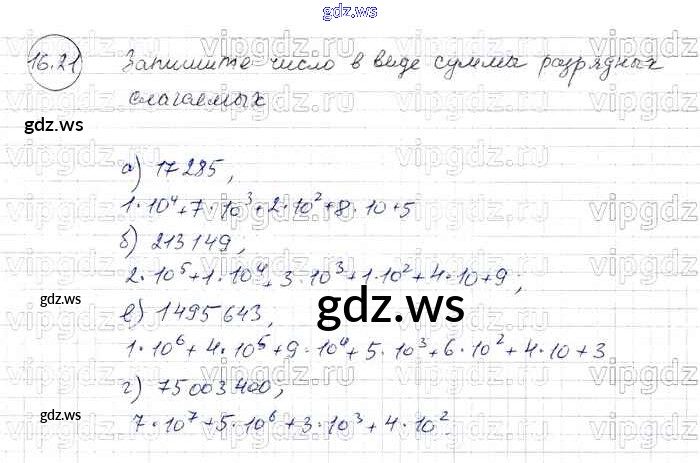 gdz.ws
16.21 Запишите число в виде суммы разрядных
слагаемых
gdz.ws
а) 17 285,
1·10⁴+7·10³+2·10²+8·10+5
б) 213 149;
2·10⁵+1·10⁴+3·10³+1·10²+4·10+9;
в) 1495 643,
1·10⁶+4·10⁵+9·10⁴+5·10³+6·10²+4·10+3
г) 75 003 400;
7·10⁷+5·10⁶+3·10³+4·10²
gdz.ws
gdz.ws
gdz.ws
vipgdz.ru